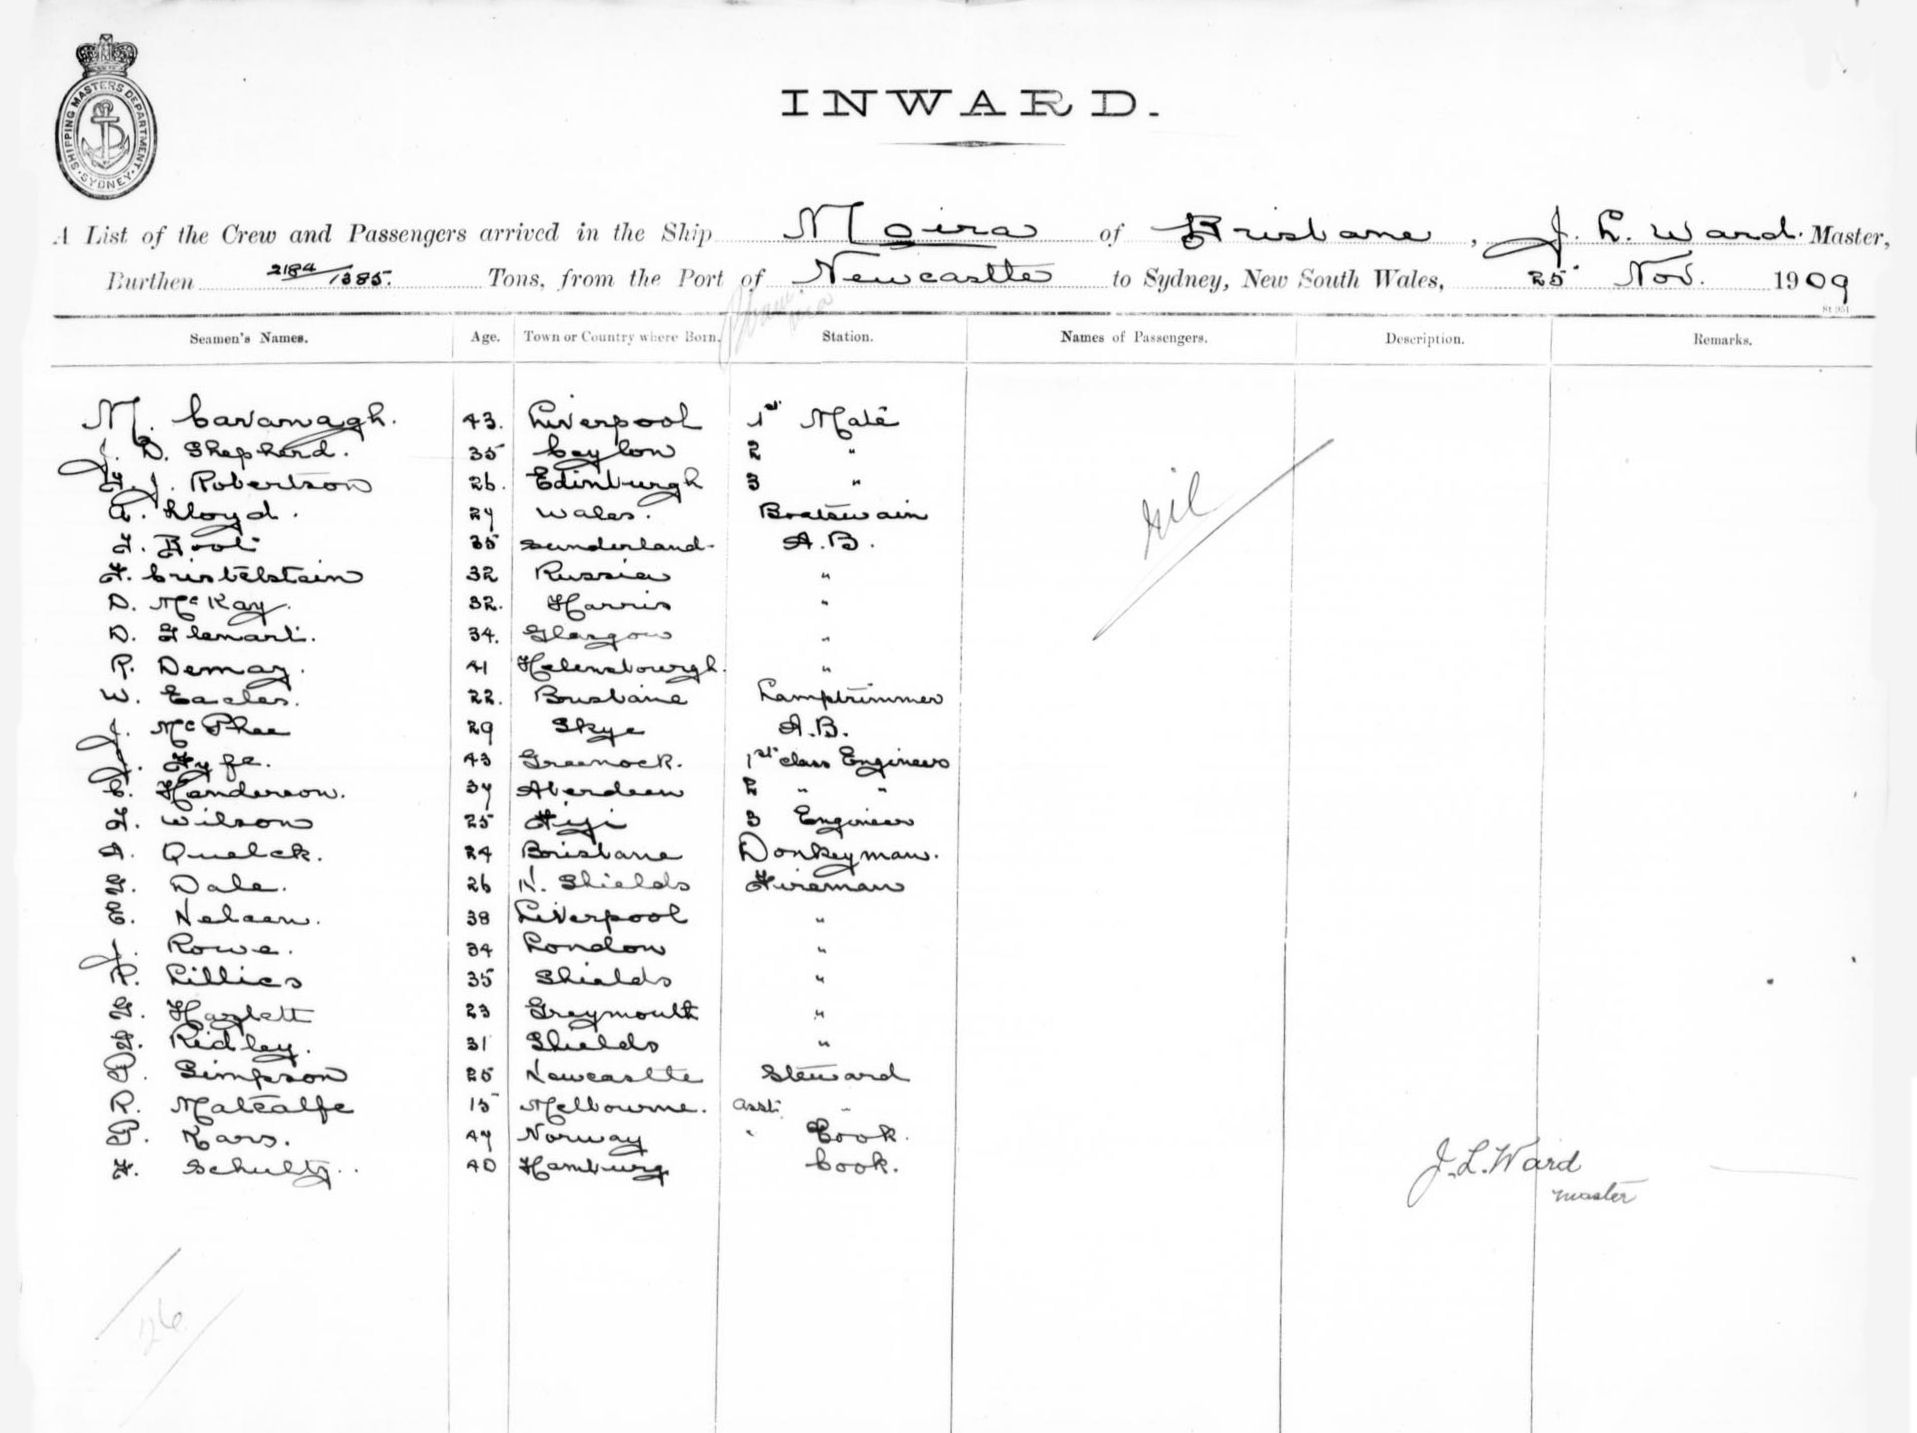 SHIPPING MASTERS DEPARTMENT. SYDNEY.
INWARD.
A List of the Crew and Passengers arrived in the Ship Moira of Brisbane, J. L. Ward. Master,
Burthen 2184/1385. Tons, from the Port of Newcastle to Sydney, New South Wales, 25 Nov. 1909
Seamen's Names. Age. Town or Country where Born. Station. Names of Passengers. Description. Remarks.
M. Cavanagh. 43. Liverpool 1st Mate
J. D. Shepherd. 35 Ceylon 2 "
J. Robertson 26. Edinburgh 3 "
A. Lloyd. 27 Wales. Boatswain
nil
F. Boot 35 Sunderland. A.B.
F. Cristelstain 32 Russia "
D. McKay. 32. Harris "
D. Glenart. 34. Glasgow "
R. Demay. 41 Helensbourgh. "
W. Eacles. 22. Brisbane Lamptrimmer
J. McPhee 29 Skye A.B.
J. Fyfe. 43 Greenock. 1st class Engineer
C. Handerson. 37 Aberdeen 2 " "
F. Wilson 25 Fiji 3 Engineer
A. Quelck. 24 Brisbane Donkeyman.
G. Dale. 26 N. Shields Fireman
E. Nelson. 38 Liverpool "
J. Rowe. 34 London "
R. Lillies 35 Shields "
G. Hazlett 23 Greymouth "
G. Ridley. 31 Shields "
P. Simpson 25 Newcastle Steward
R. Metcalfe 15 Melbourne. Asst. "
P. Kars. 47 Norway " Cook.
F. Schultz. 40 Hamburg Cook.
J. L. Ward
master
26